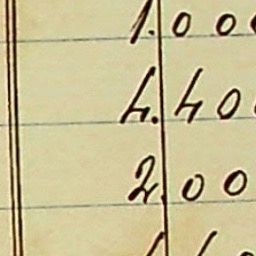 1.00
4.40
2.00